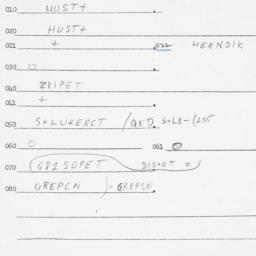 010 HUST+
020 HUST+
021 + 022 HERNDIK
030 O
040 Z8IPET
041 +
050 S+LUKERCT /QED S+L8-(235
060 O 061 O
070 G81SOPET DIS+OT =
080 GREPCN )= GREPSN